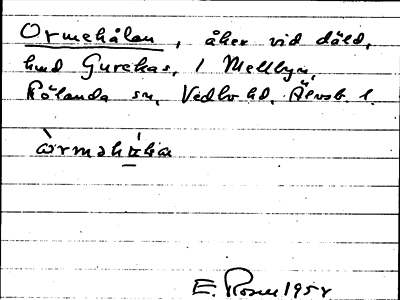 Ormehålan, åker vid däld,
hmd Gurekas, 1 Mellbyn,
Rölanda sn, Vedbo hd, Älvsb. l.
E. Rosen 195